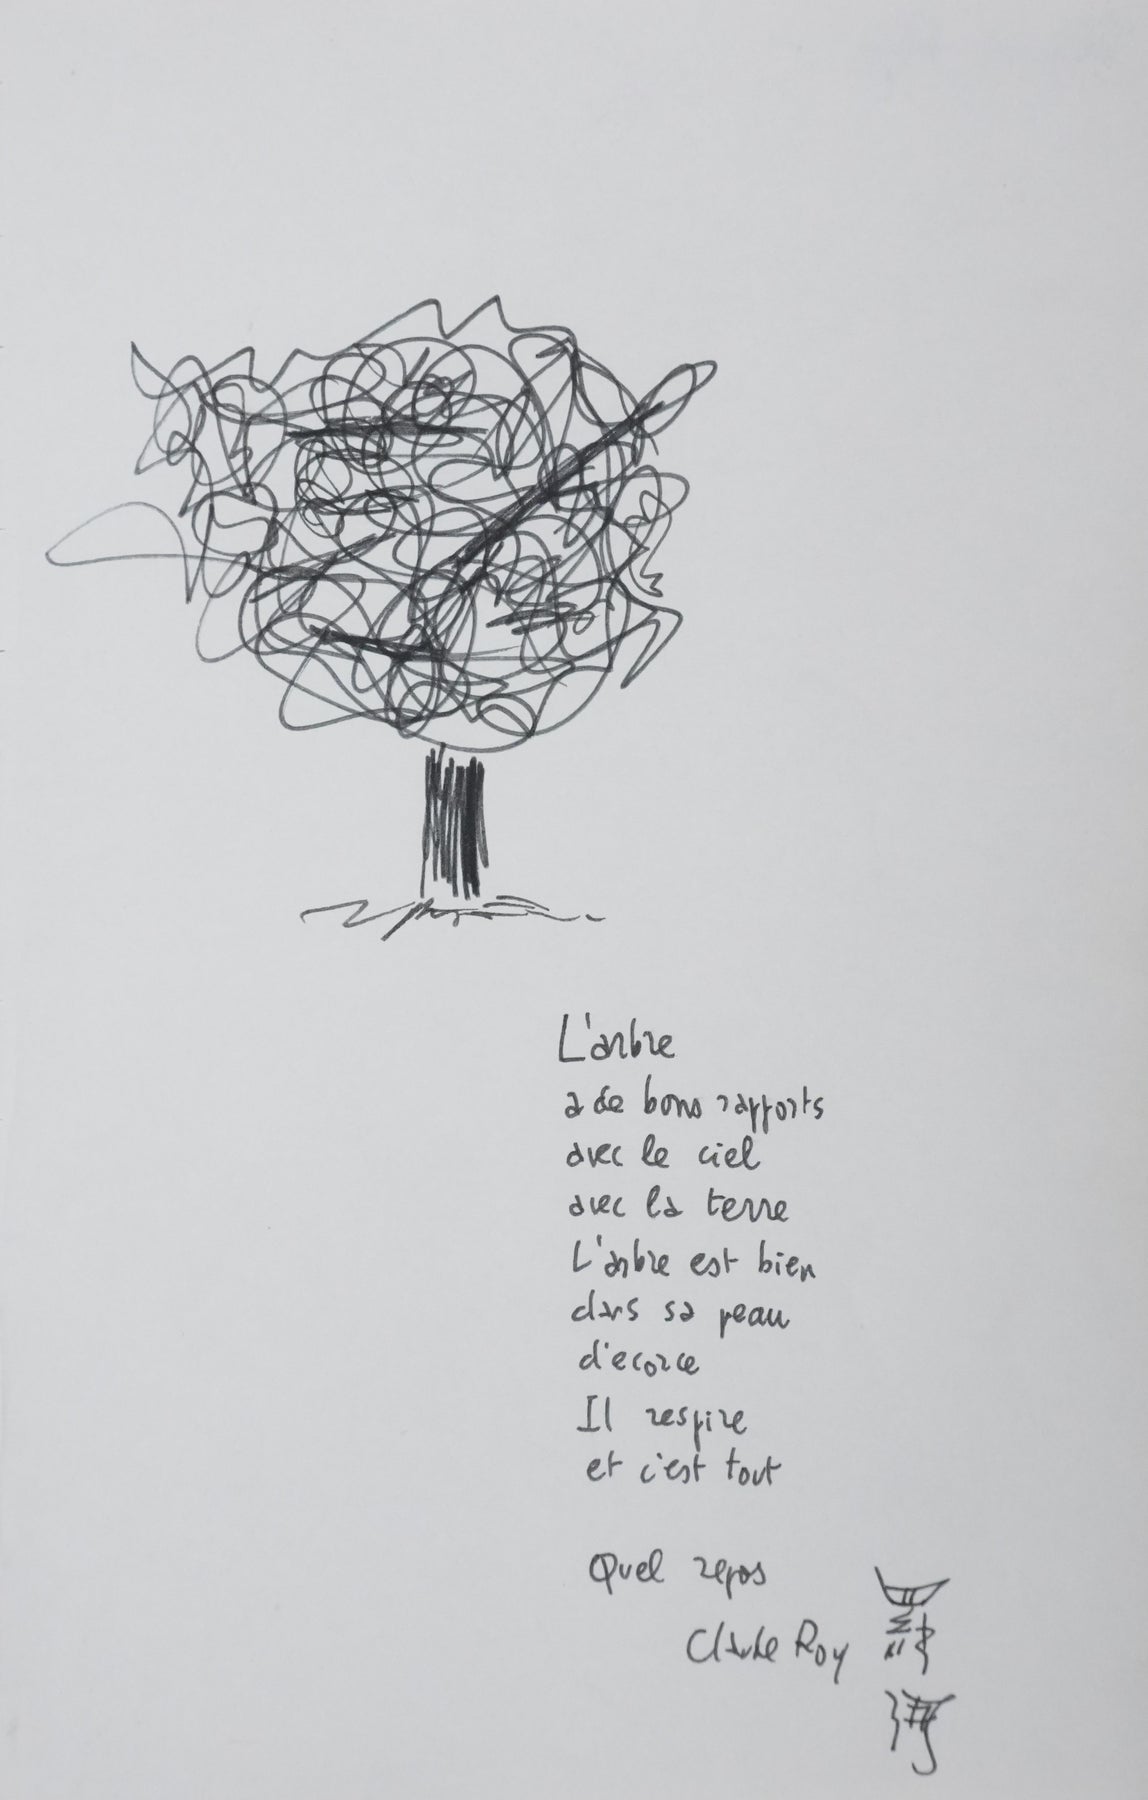 L'arbre
a de bons rapports
avec le ciel
avec la terre
L'arbre est bien
dans sa peau
d'ecorce
Il respire
et c'est tout
Quel repos
Claude Roy